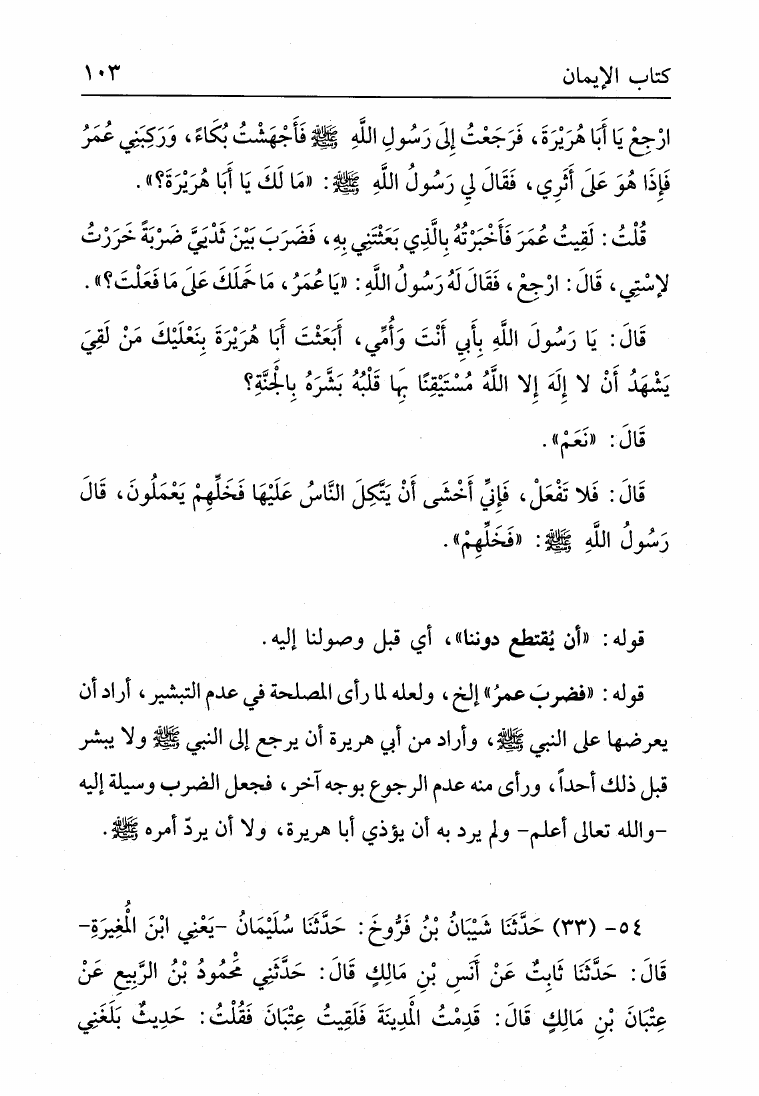 كتاب الإيمان ١٠٣
ارْجِعْ يَا أَبَا هُرَيْرَةَ، فَرَجَعْتُ إِلَى رَسُولِ اللَّهِ ﷺ فَأَجْهَشْتُ بُكَاءً، وَرَكِبَنِي عُمَرُ
فَإِذَا هُوَ عَلَى أَثَرِي، فَقَالَ لِي رَسُولُ اللَّهِ ﷺ: «مَا لَكَ يَا أَبَا هُرَيْرَةَ؟».
قُلْتُ: لَقِيتُ عُمَرَ فَأَخْبَرْتُهُ بِالَّذِي بَعَثْتَنِي بِهِ، فَضَرَبَ بَيْنَ ثَدْيَيَّ ضَرْبَةً خَرَرْتُ
لِإسْتِي، قَالَ: ارْجِعْ، فَقَالَ لَهُ رَسُولُ اللَّهِ: «يَا عُمَرُ، مَا حَمَلَكَ عَلَى مَا فَعَلْتَ؟».
قَالَ: يَا رَسُولَ اللَّهِ بِأَبِي أَنْتَ وَأُمِّي، أَبَعَثْتَ أَبَا هُرَيْرَةَ بِنَعْلَيْكَ مَنْ لَقِيَ
يَشْهَدُ أَنْ لا إِلَهَ إِلا اللَّهُ مُسْتَيْقِنًا بِهَا قَلْبُهُ بَشَّرَهُ بِالْجَنَّةِ؟
قَالَ: «نَعَمْ».
قَالَ: فَلا تَفْعَلْ، فَإِنِّي أَخْشَى أَنْ يَتَّكِلَ النَّاسُ عَلَيْهَا فَخَلِّهِمْ يَعْمَلُونَ، قَالَ
رَسُولُ اللَّهِ ﷺ: «فَخَلِّهِمْ».
قوله: «أن يُقتطع دوننا»، أي قبل وصولنا إليه.
قوله: «فضربَ عمرُ» إلخ، ولعله لما رأى المصلحة في عدم التبشير، أراد أن
يعرضها على النبي ﷺ، وأراد من أبي هريرة أن يرجع إلى النبي ﷺ ولا يبشر
قبل ذلك أحداً، ورأى منه عدم الرجوع بوجه آخر، فجعل الضرب وسيلة إليه
-والله تعالى أعلم- ولم يرد به أن يؤذي أبا هريرة، ولا أن يردّ أمره ﷺ.
٥٤- (٣٣) حَدَّثَنَا شَيْبَانُ بْنُ فَرُّوخَ: حَدَّثَنَا سُلَيْمَانُ -يَعْنِي ابْنَ الْمُغِيرَةِ-
قَالَ: حَدَّثَنَا ثَابِتٌ عَنْ أَنَسِ بْنِ مَالِكٍ قَالَ: حَدَّثَنِي مَحْمُودُ بْنُ الرَّبِيعِ عَنْ
عِتْبَانَ بْنِ مَالِكٍ قَالَ: قَدِمْتُ الْمَدِينَةَ فَلَقِيتُ عِتْبَانَ فَقُلْتُ: حَدِيثٌ بَلَغَنِي